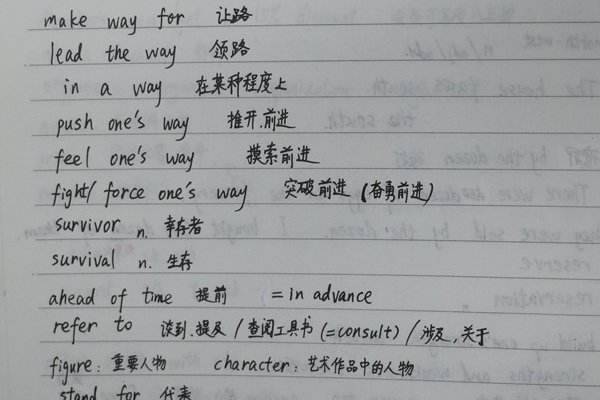 make way for 让路
lead the way 领路
in a way 在某种程度上
push one's way 推开.前进
feel one's way 摸索前进
fight/force one's way 突破前进(奋勇前进)
survivor n. 幸存者
survival n. 生存
ahead of time 提前 = in advance
refer to 谈到.提及/查阅工具书(=consult)/涉及,关于
figure: 重要人物 character: 艺术作品中的人物
stand for 代表